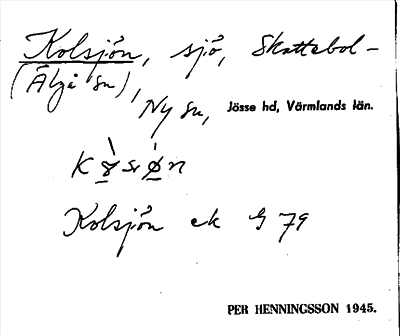 Kolsjön, sjö, Skattebol-
(Älgå sn), Ny sn, Jösse hd, Värmlands län.
Kolsjön ek G 79
PER HENNINGSSON 1945.